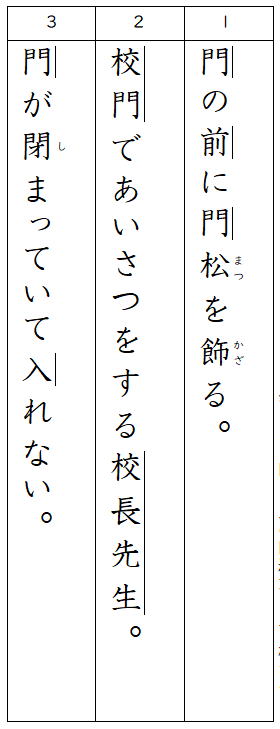 1
門の前に門松を飾る。
まつ
かざ
2
校門であいさつをする校長先生。
3
門が閉まっていて入れない。
し